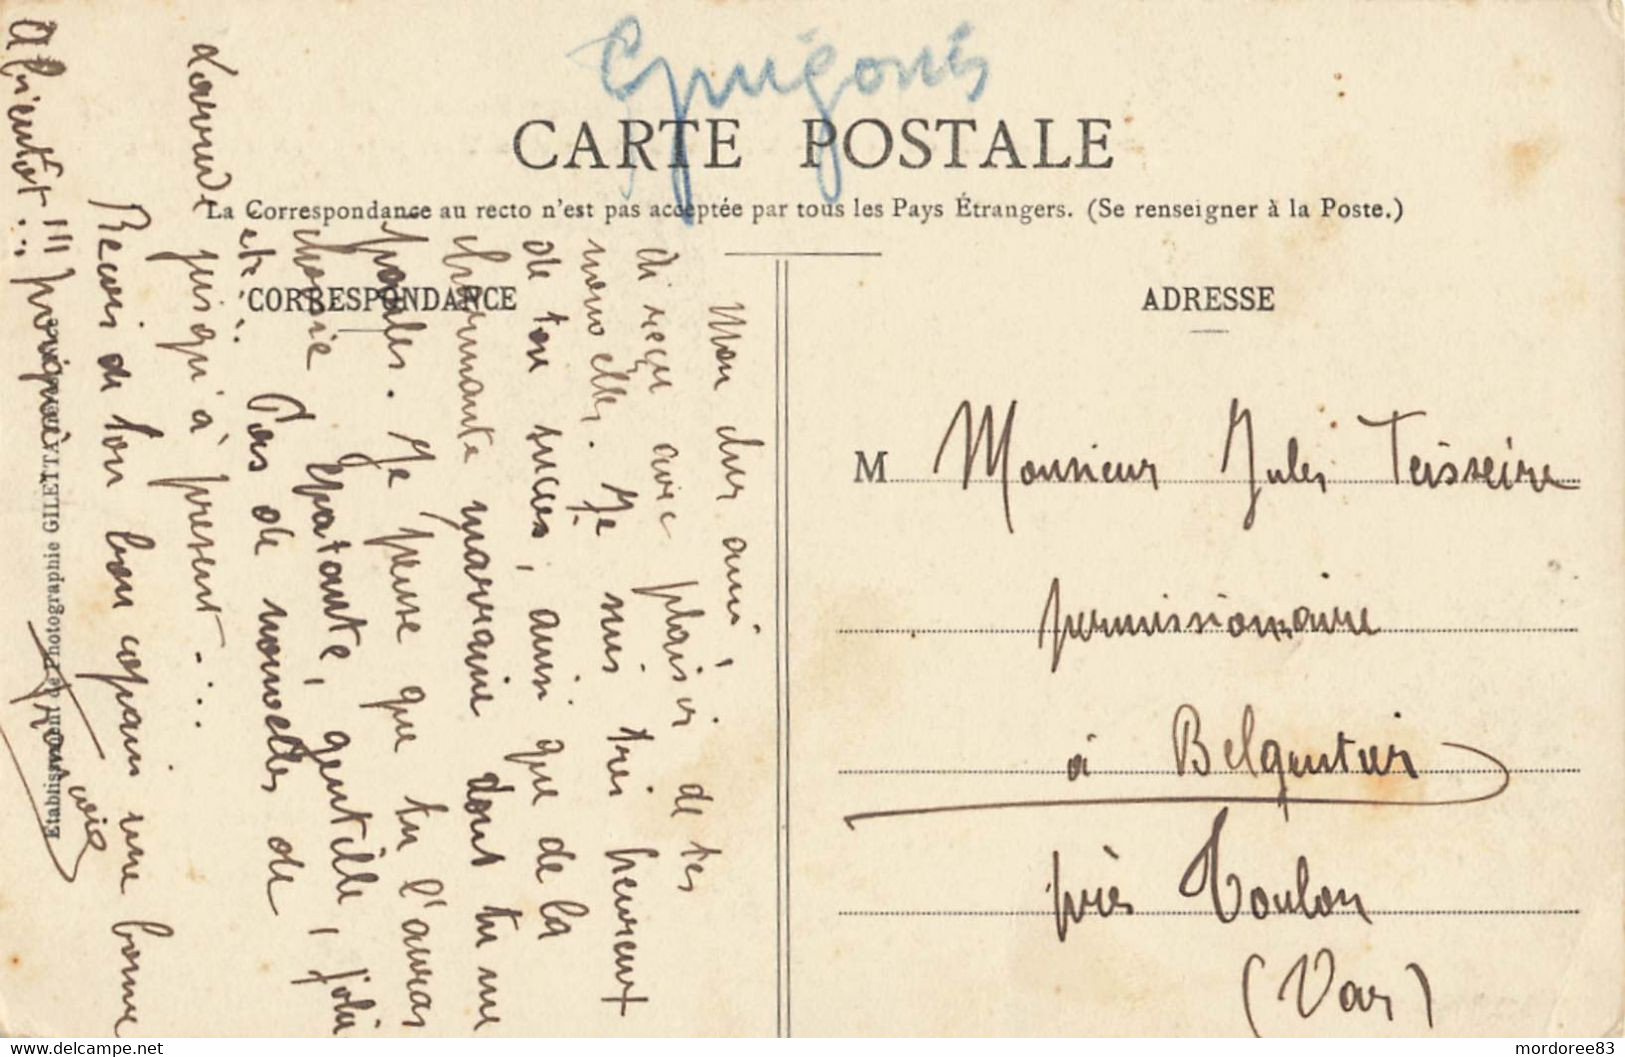 CARTE POSTALE
La Correspondance au recto n'est pas acceptée par tous les Pays Étrangers. (Se renseigner à la Poste.)
CORRESPONDANCE
Mon cher ami,
Ai reçu avec plaisir de tes
nouvelles. Je suis très heureux
de ton succès, ainsi que de la
charmante marraine dont tu me
parles. Je pense que tu l'auras
choisie épatante, gentille, jolie
etc... Pas de nouvelles de
jusqu'à présent...
Reçois de ton bon copain une bonne
A bientôt!!!
Etablissement de Photographie GILETTA
ADRESSE
M Monsieur Jules Teisseire
permissionnaire
à Belgentier
près Toulon
(Var)
delcampe.net
mordoree83